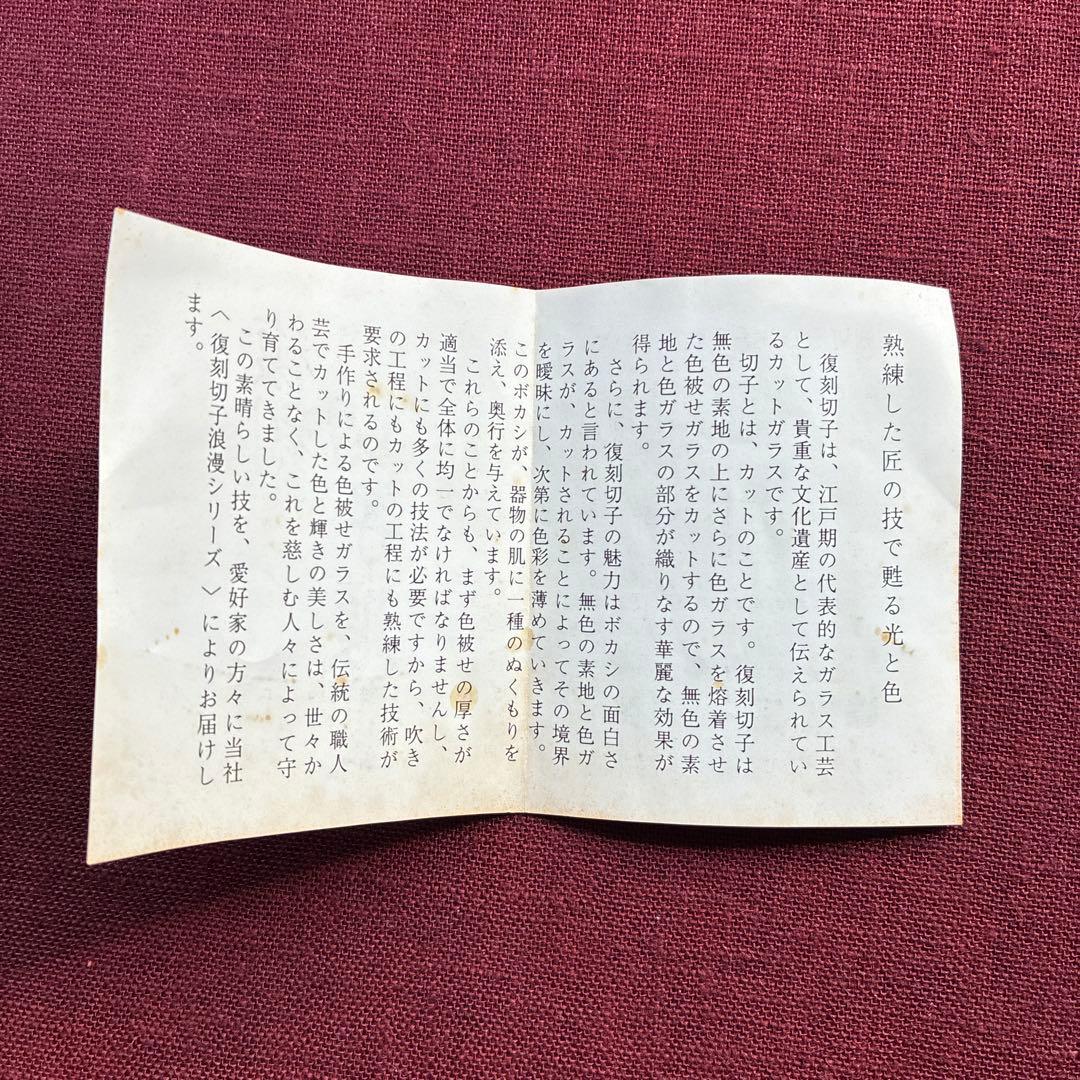 熟練した匠の技で甦る光と色
復刻切子は、江戸期の代表的なガラス工芸
として、貴重な文化遺産として伝えられてい
るカットガラスです。
切子とは、カットのことです。復刻切子は
無色の素地の上にさらに色ガラスを熔着させ
た色被せガラスをカットするので、無色の素
地と色ガラスの部分が織りなす華麗な効果が
得られます。
さらに、復刻切子の魅力はボカシの面白さ
にあると言われています。無色の素地と色ガ
ラスが、カットされることによってその境界
を曖昧にし、次第に色彩を薄めていきます。
このボカシが、器物の肌に一種のぬくもりを
添え、奥行を与えています。
これらのことからも、まず色被せの厚さが
適当で全体に均一でなければなりませんし、
カットにも多くの技法が必要ですから、吹き
の工程にもカットの工程にも熟練した技術が
要求されるのです。
手作りによる色被せガラスを、伝統の職人
芸でカットした色と輝きの美しさは、世々か
わることなく、これを慈しむ人々によって守
り育ててきました。
この素晴らしい技を、愛好家の方々に当社
〈復刻切子浪漫シリーズ〉によりお届けし
ます。